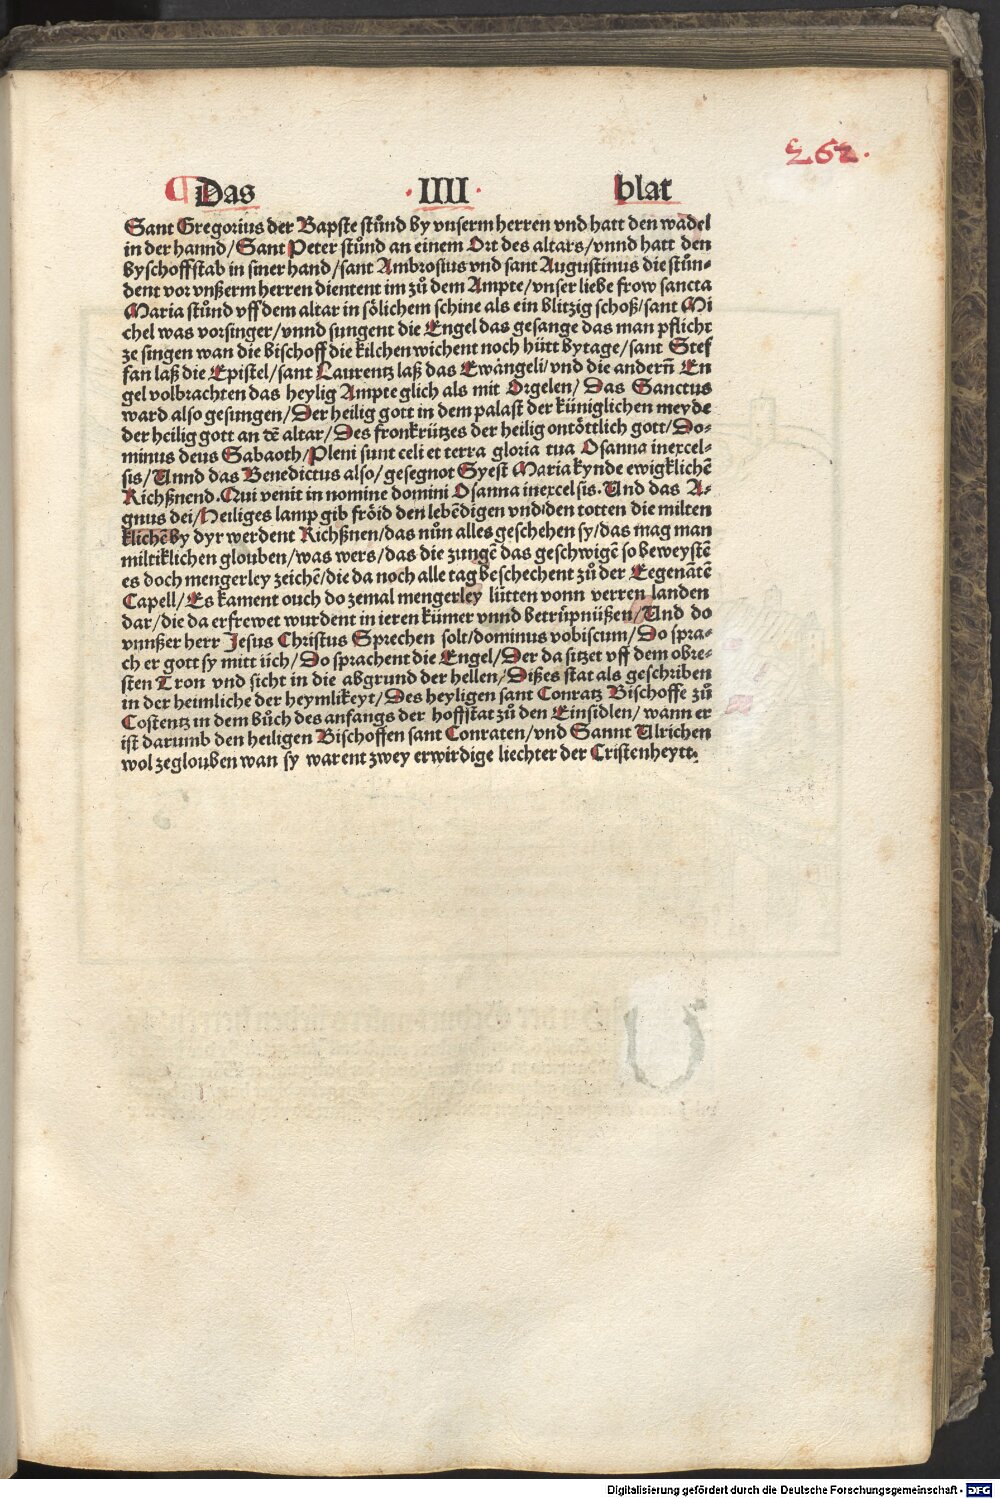 262.
Das · IIII · blat
Sant Gregorius der Bapste stůnd by vnserm herren vnd hatt den wadel
in der hannd/Sant Peter stůnd an einem Ort des altars/vnnd hatt den
byschoffstab in siner hand/sant Ambrosius vnd sant Augustinus die stůn-
dent vor vnßerm herren dientent im zů dem Ampte/vnser liebe frow sancta
Maria stůnd vff dem altar in sölichem schine als ein blitzig schoß/sant Mi
chel was vorsinger/vnnd sungent die Engel das gesange das man pflicht
ze singen wan die bischoff die kilchen wichent noch hütt by tage/sant Stef
fan laß die Epistel/sant Laurentz laß das Ewangeli/vnd die anderñ En
gel volbrachten das heylig Ampte glich als mit Orgelen/ Das Sanctus
ward also gesungen/Der heilig gott in dem palast der küniglichen meyde
der heilig gott an dē altar/Des fronkrützes der heilig ontöttlich gott/Do-
minus deus Sabaoth/Pleni sunt celi et terra gloria tua Osanna inexcel-
sis/Unnd das Benedictus also/gesegnot Syest Maria kynde ewigklichē
Richßnend.Qui venit in nomine domini Osanna inexcelsis.Und das A-
gnus dei/Heiliges lamp gib fröid den lebēdigen vnd den totten die milten
klichē by dyr werdent Richßnen/das nůn alles geschehen sy/das mag man
miltiklichen glouben/was wers/das die zungē das geschwigē so beweystē
es doch mengerley zeichē/die da noch alle tag beschechent zů der Eegenātē
Capell/Es kament ouch do zemal mengerley lütten vonn verren landen
dar/die da erfrewet wurdent in ieren kümer vnnd betrüpnüßen/Und do
vnnßer herr Jesus Christus Sprechen solt/dominus vobiscum/Do spra-
ch er gott sy mitt üch/Do sprachent die Engel/Der da sitzet vff dem obre-
sten Tron vnd sicht in die abgrund der hellen/Dißes stat als geschriben
in der heimliche der heymlikeyt/Des heyligen sant Conratz Bischoffe zů
Costentz in dem bůch des anfangs der hoffstat zů den Einsidlen/wann er
ist darumb den heiligen Bischoffen sant Conraten/vnd Sannt Ulrichen
wol ze glouben wan sy warent zwey erwirdige liechter der Cristenheytt.
Digitalisierung gefördert durch die Deutsche Forschungsgemeinschaft - DFG